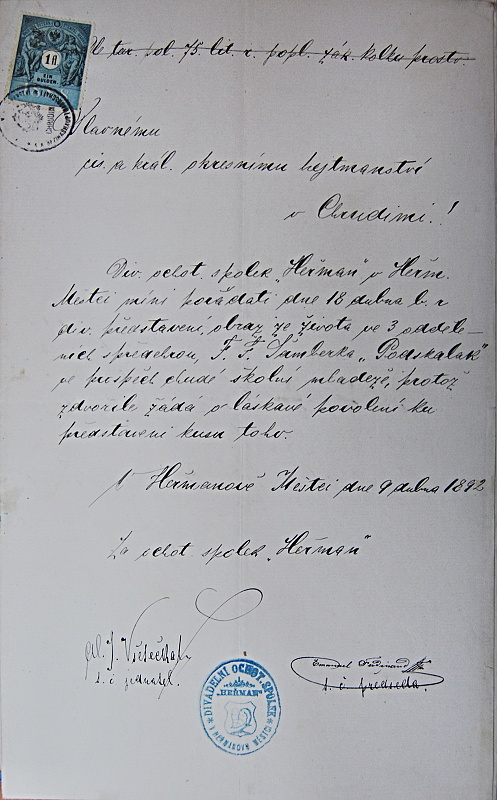 1 fl
EIN GULDEN
tar. pol. 75. lit. r. popl. zák. kolku prosto.
Slavnému
cis. a král. okresnímu hejtmanství
v Chrudimi!
Div. ochot. spolek „Heřman" v Heřm.
Městci míní pořádati dne 18 dubna b. r
div. představení, obraz ze života ve 3 odděle-
ních s předehrou, F. F. Šamberka „Podskalák"
ve prospěch chudé školní mládeže, protož
zdvořile žádá o láskavé povolení ku
představení kusu toho.
V Heřmanově Městci dne 9 dubna 1892
Za ochot. spolek „Heřman"
J. Všetečka
t. č. jednatel.
Emanuel Ferdinand
t. č. předseda
DIVADELNÍ OCHOT. SPOLEK
„HEŘMAN"
V HEŘMANOVĚ MĚSTCI